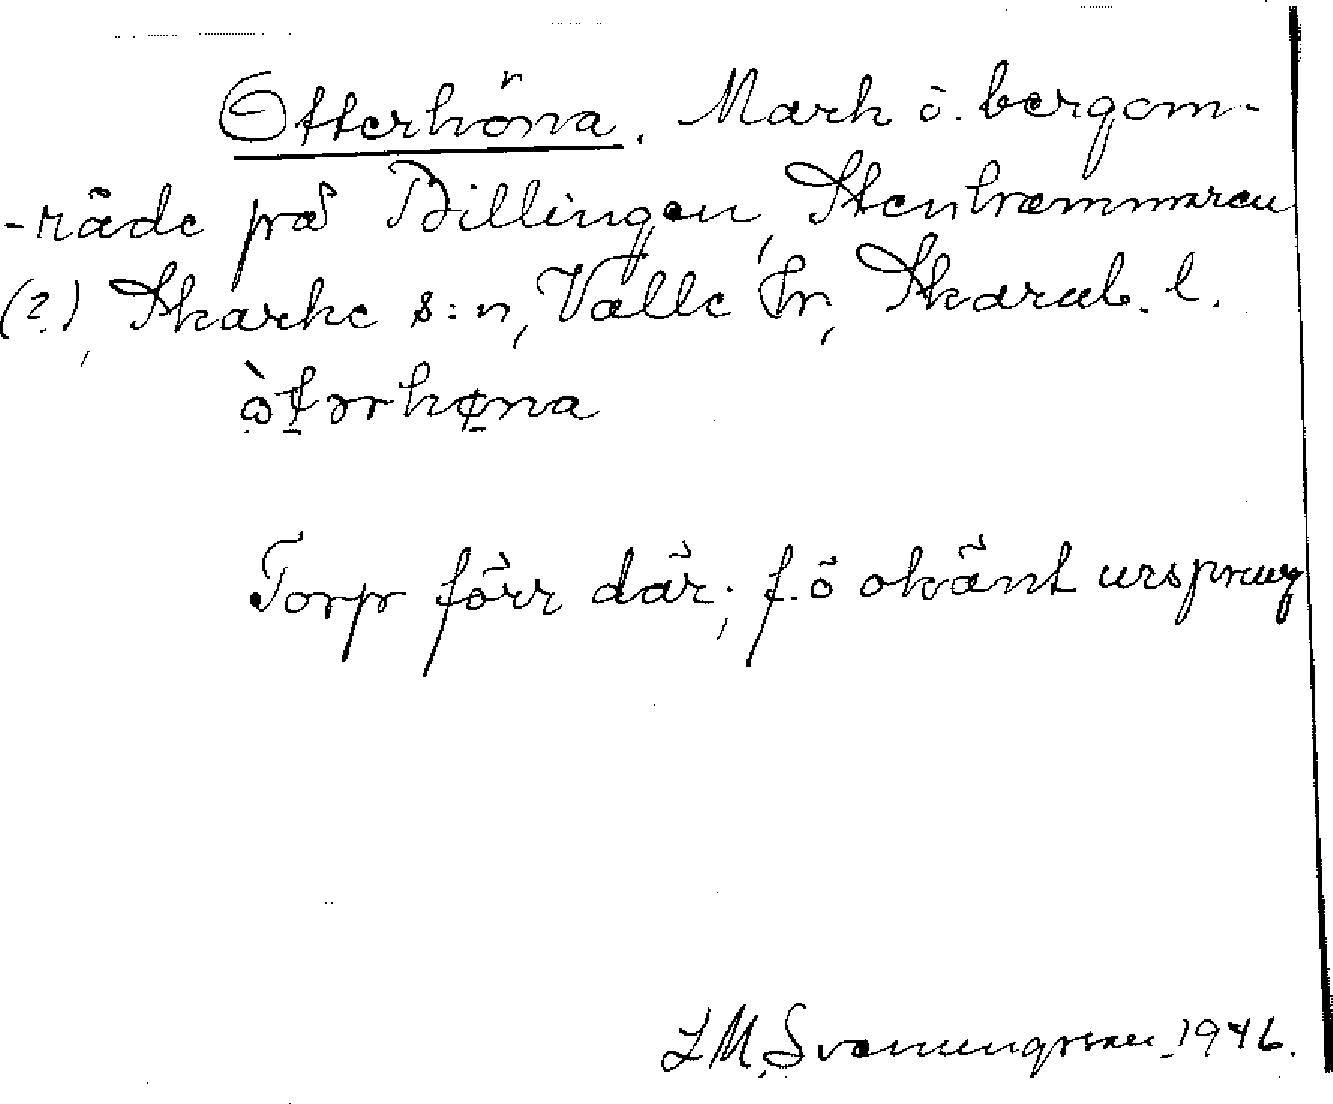 Otterhöna. Mark o. bergom-
-råde på Billingen, Stenhammaren
(?), Skarke s:n, Valle hr, Skarab. l.
òtərhøna
Torp förr där; f. ö okänt ursprung
L M, Svanungsson 1946.